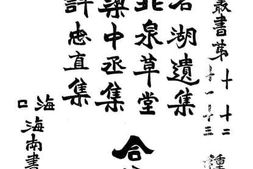 叢書第
石湖遺集
北泉草堂
梁中丞集
許忠直集
合
海口
海南書